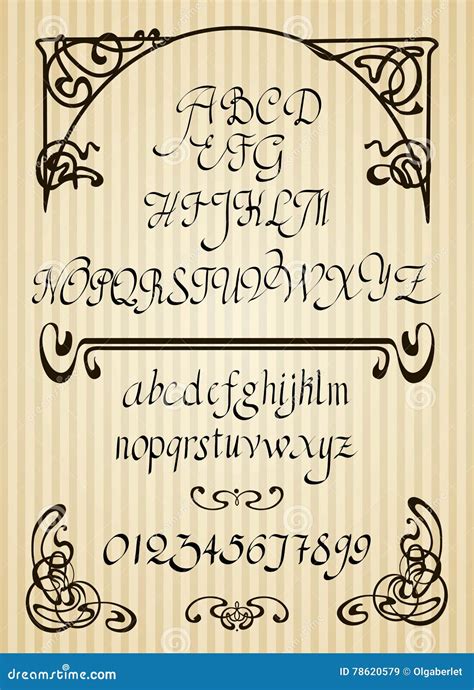 ABCD
EFG
HIJKLM
NOPQRSTUVWXYZ
abcdefghijklm
nopqrstuvwxyz
012345677899
dreamstime.com
ID 78620579 © Olgaberlet